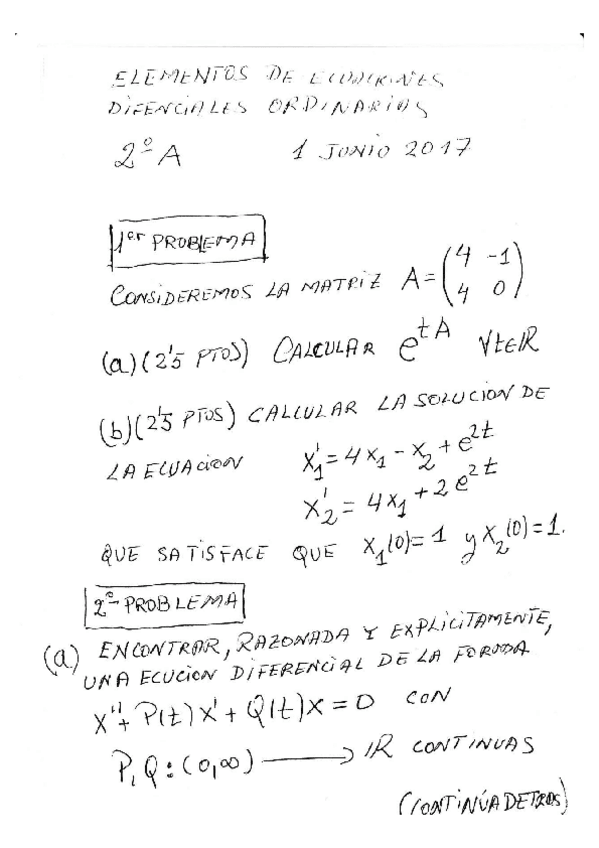 ELEMENTOS DE ECUACIONES
DIFENCIALES ORDINARIAS
2º A 1 JUNIO 2017
1er PROBLEMA
CONSIDEREMOS LA MATRIZ A = (4 -1; 4 0)
(a) (2'5 PTOS) CALCULAR e^{tA} ∀t∈IR
(b) (2'5 PTOS) CALCULAR LA SOLUCION DE
LA ECUACION x₁' = 4x₁ - x₂ + e^{2t}
x₂' = 4x₁ + 2e^{2t}
QUE SATISFACE QUE x₁(0)=1 y x₂(0)=1.
2º PROBLEMA
(a) ENCONTRAR, RAZONADA Y EXPLICITAMENTE,
UNA ECUCION DIFERENCIAL DE LA FORMA
x'' + P(t)x' + Q(t)x = 0 CON
P, Q : (0,∞) ⟶ IR CONTINUAS
(CONTINÚA DETRAS)